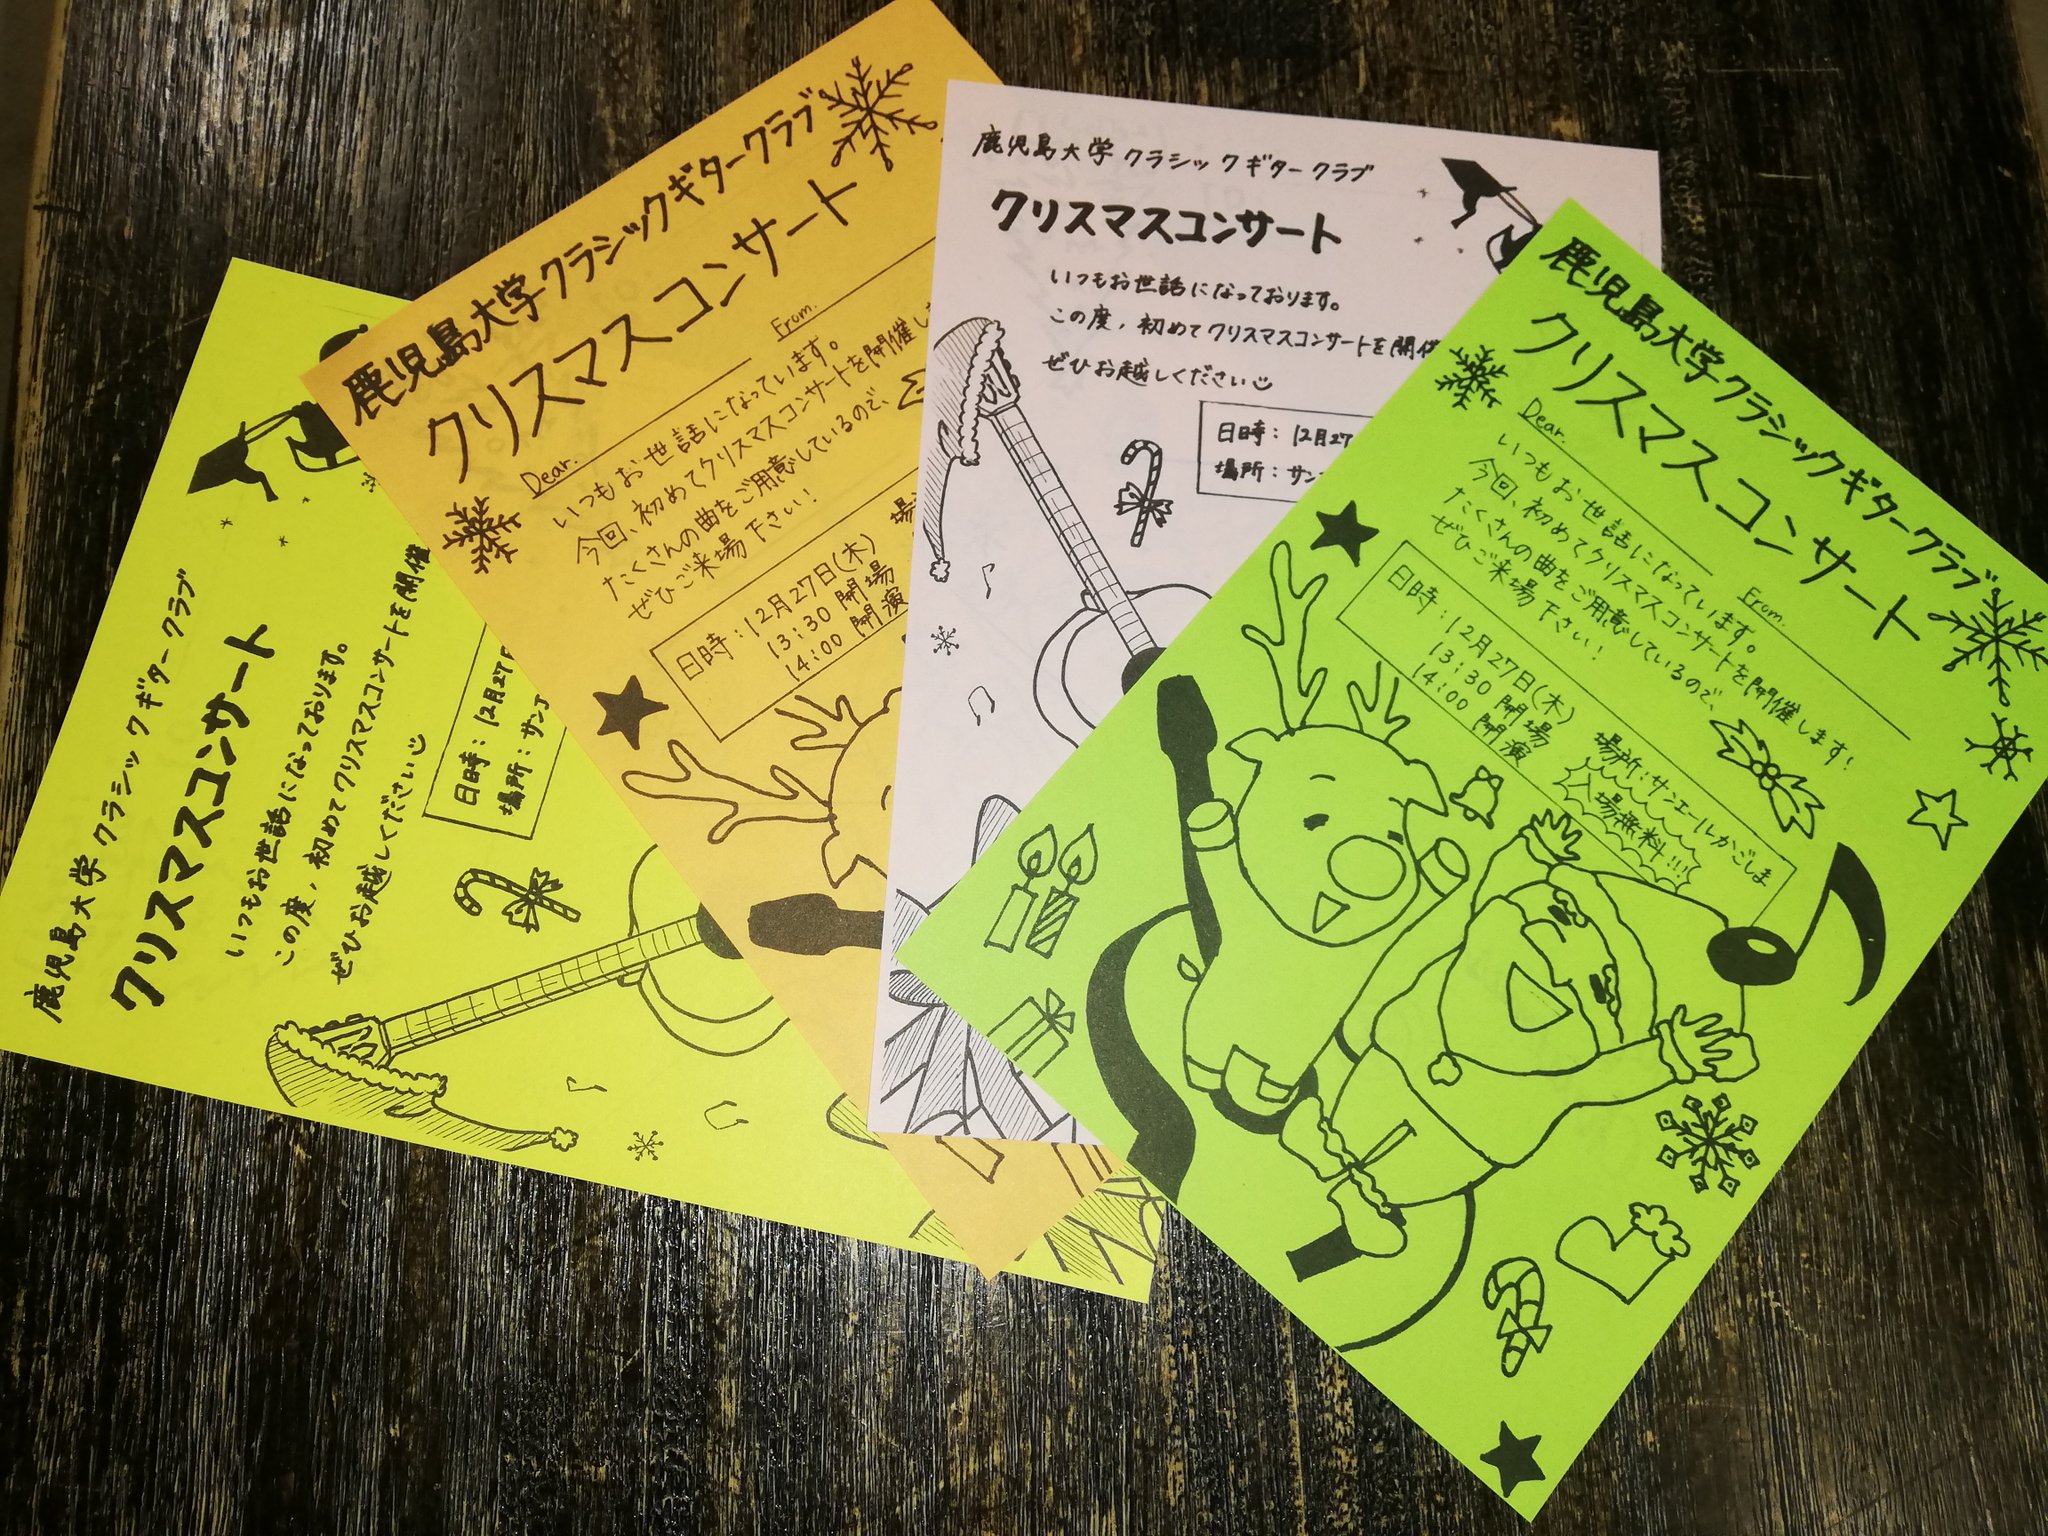 鹿児島大学 クラシック ギター クラブ
クリスマスコンサート
いつもお世話になっております。
この度、初めてクリスマスコンサートを開催
ぜひお越しください
日時：12月27日
場所：サンエ
鹿児島大学クラシックギタークラブ
クリスマスコンサート
Dear.
From.
いつもお世話になっています。
今回、初めてクリスマスコンサートを開催しま
たくさんの曲をご用意しているので、
ぜひご来場下さい！
日時：12月27日(木)
13:30 開場
14:00 開演
場
鹿児島大学 クラシック ギター クラブ
クリスマスコンサート
いつもお世話になっております。
この度、初めてクリスマスコンサートを開催
ぜひお越しください
日時：12月27
場所：サン
鹿児島大学クラシックギタークラブ
クリスマスコンサート
Dear.
From.
いつもお世話になっています。
今回、初めてクリスマスコンサートを開催します！
たくさんの曲をご用意しているので、
ぜひご来場下さい！
日時：12月27日(木)
13:30 開場
14:00 開演
場所：サンエールかごしま
入場無料!!!